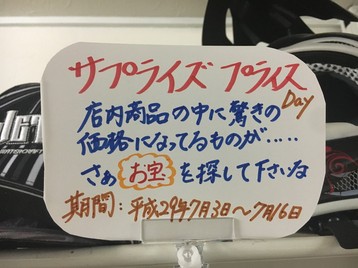 サプライズ プライス
Day
店内商品の中に驚きの
価格になってるものが.....
さぁ お宝 を探して下さいな
期間:平成29年7月3日~7月16日